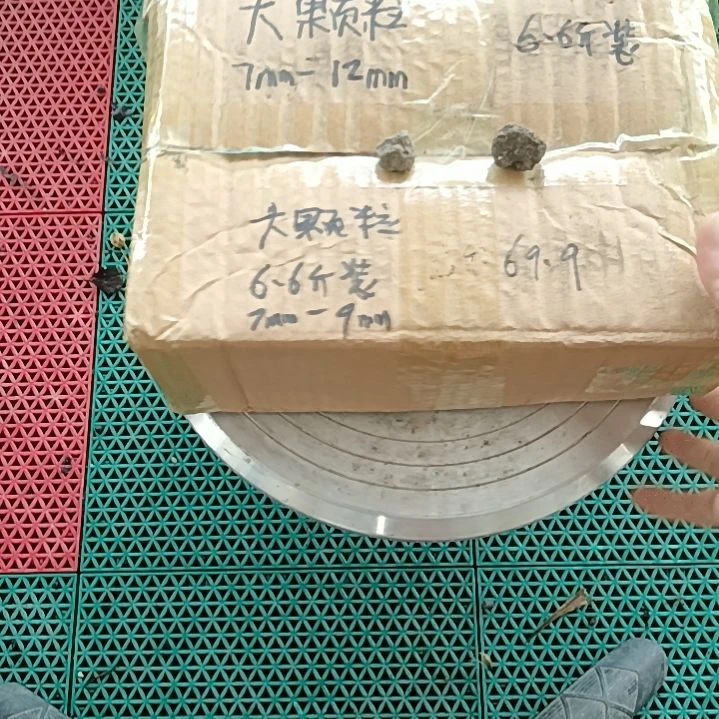 大颗粒
6.6斤装
7mm-12mm
大颗粒
69.9
6.6斤装
7mm-9mm